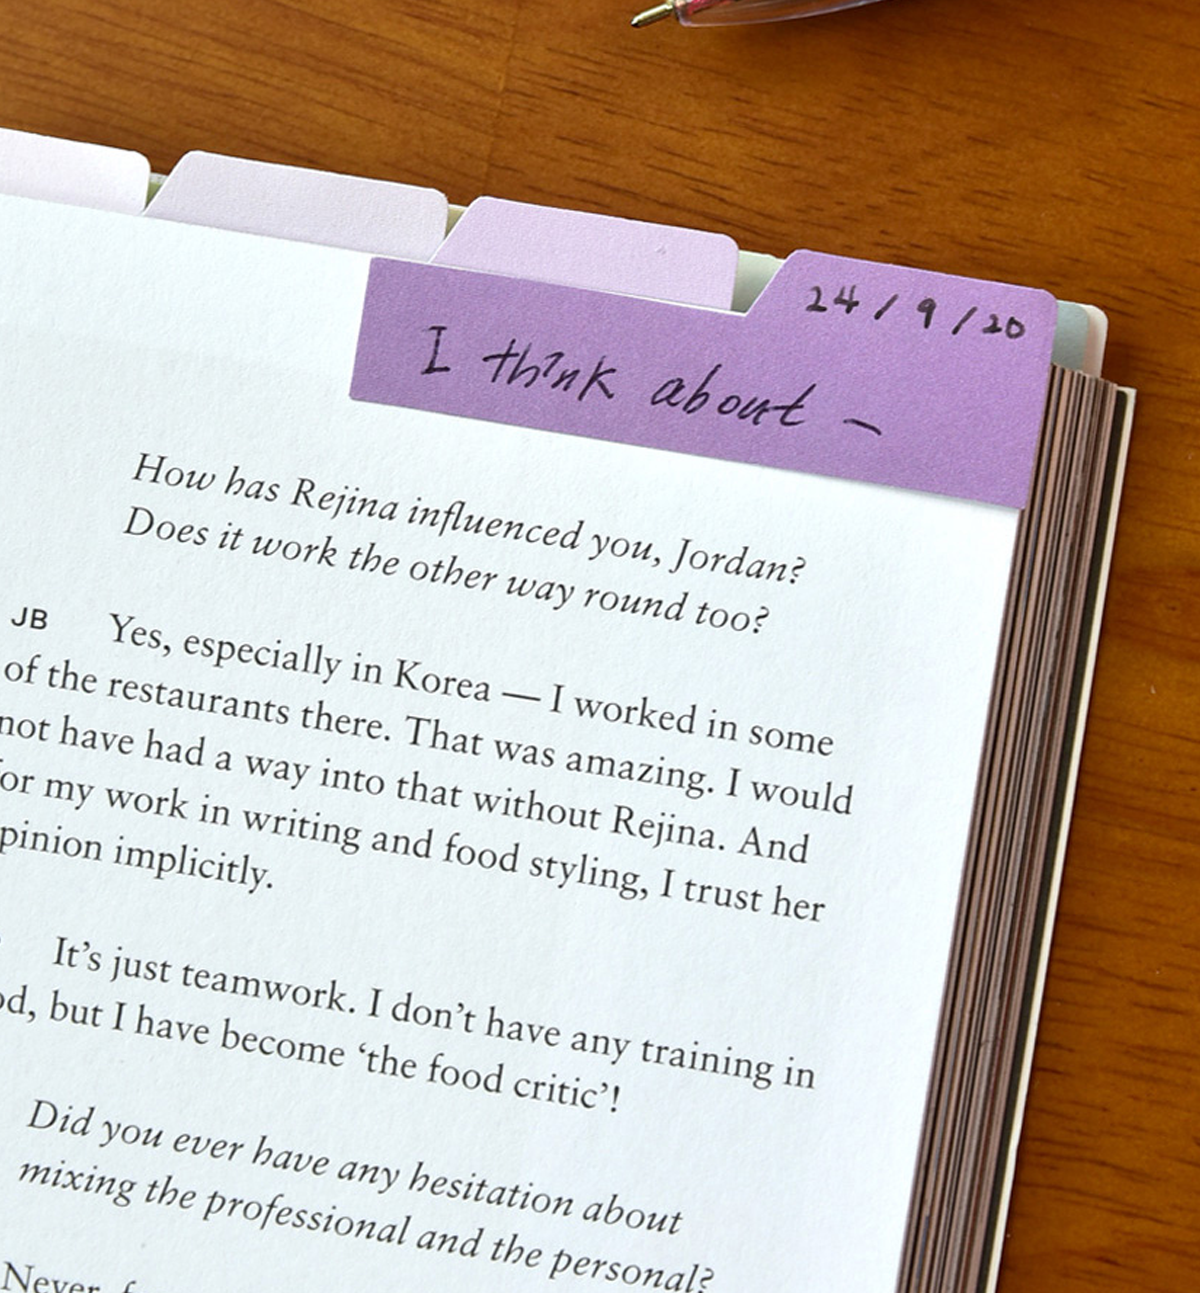 24/9/20
I think about –
How has Rejina influenced you, Jordan?
Does it work the other way round too?
JB Yes, especially in Korea — I worked in some
of the restaurants there. That was amazing. I would
not have had a way into that without Rejina. And
for my work in writing and food styling, I trust her
pinion implicitly.
It’s just teamwork. I don’t have any training in
od, but I have become ‘the food critic’!
Did you ever have any hesitation about
mixing the professional and the personal?
Never, f